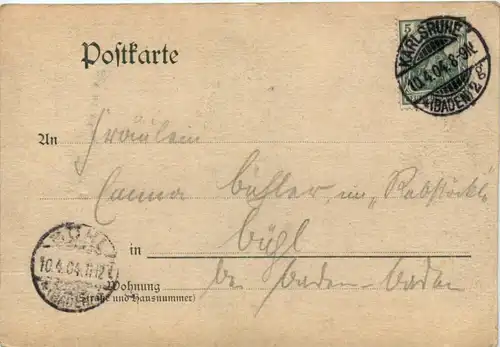 5
KARLSRUHE
10.4.04.8-9N.
(BADEN) 2g
Postkarte
An
Fräulein
Emma Bühler, im „Rebstöckl“
in
Bühl
bei Baden-Baden
10.4.04.11-12
(BADEN)
Wohnung
(Straße und Hausnummer)